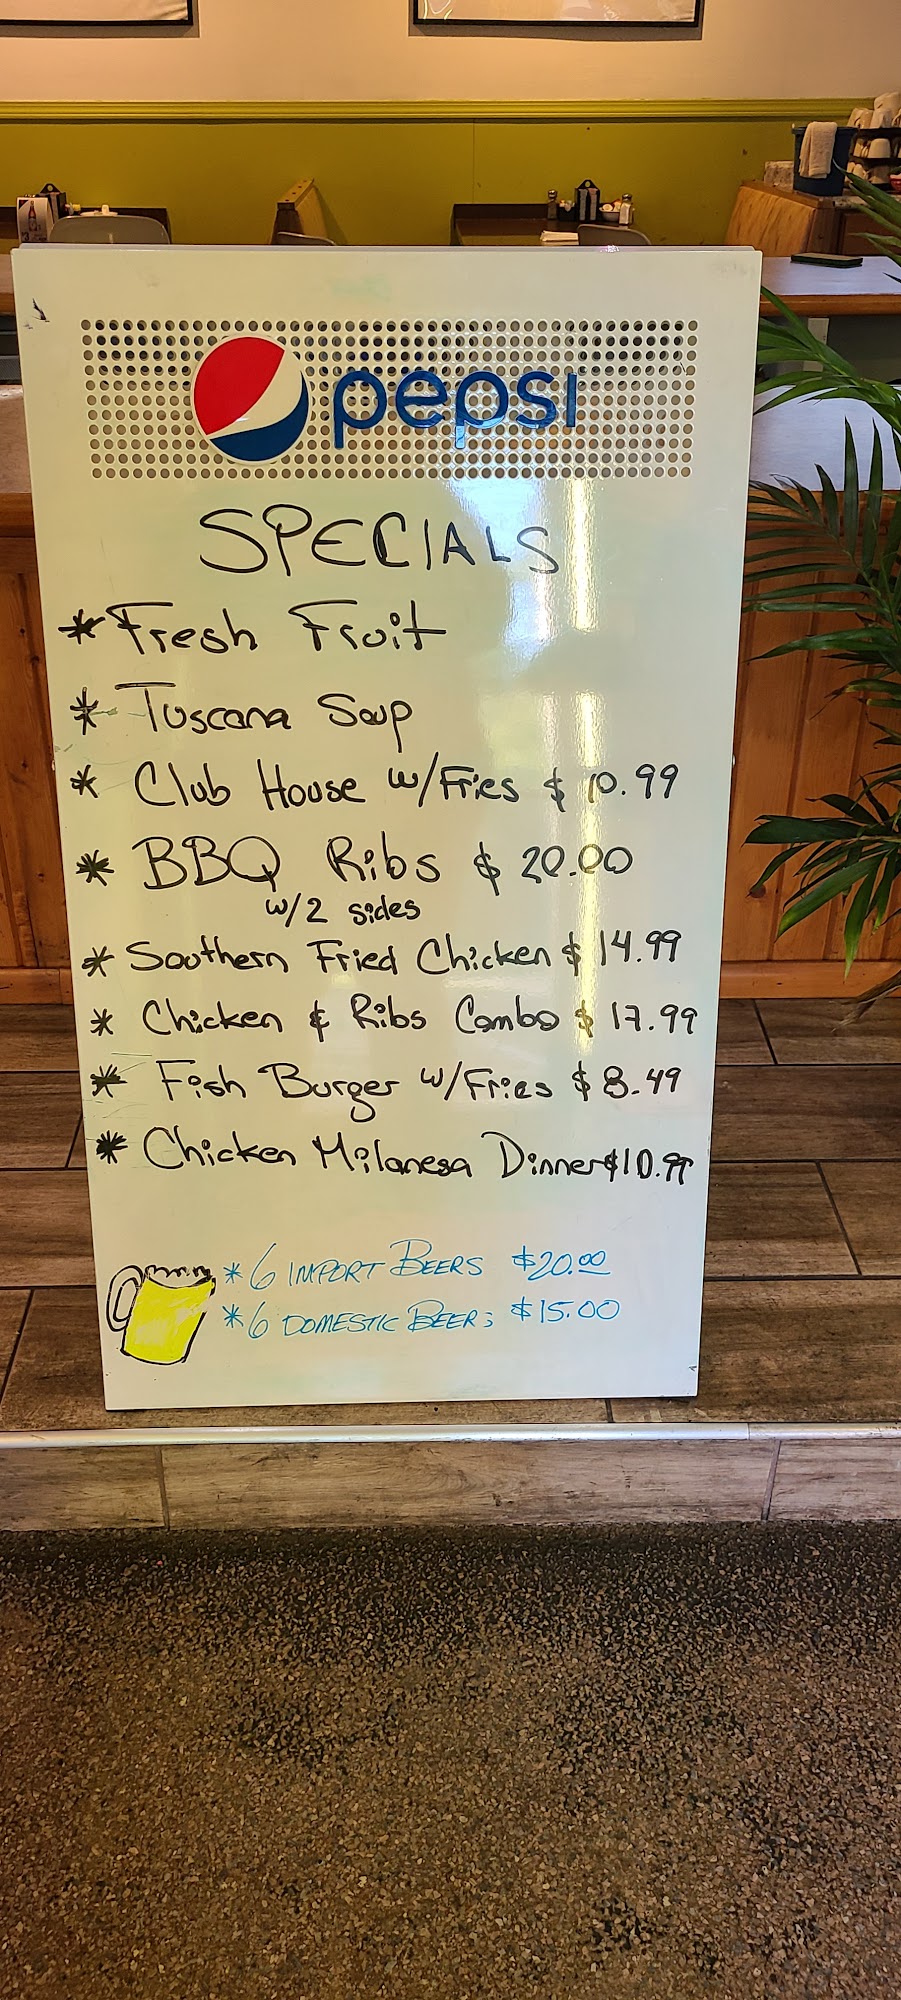 pepsi
SPECIALS
* Fresh Fruit
* Tuscana Soup
* Club House w/Fries $ 10.99
* BBQ Ribs $ 20.00
w/2 sides
* Southern Fried Chicken $ 14.99
* Chicken & Ribs Combo $ 17.99
* Fish Burger w/Fries $ 8.49
* Chicken Milanesa Dinner $10.99
* 6 IMPORT BEERS $20.00
* 6 DOMESTIC BEERS $15.00